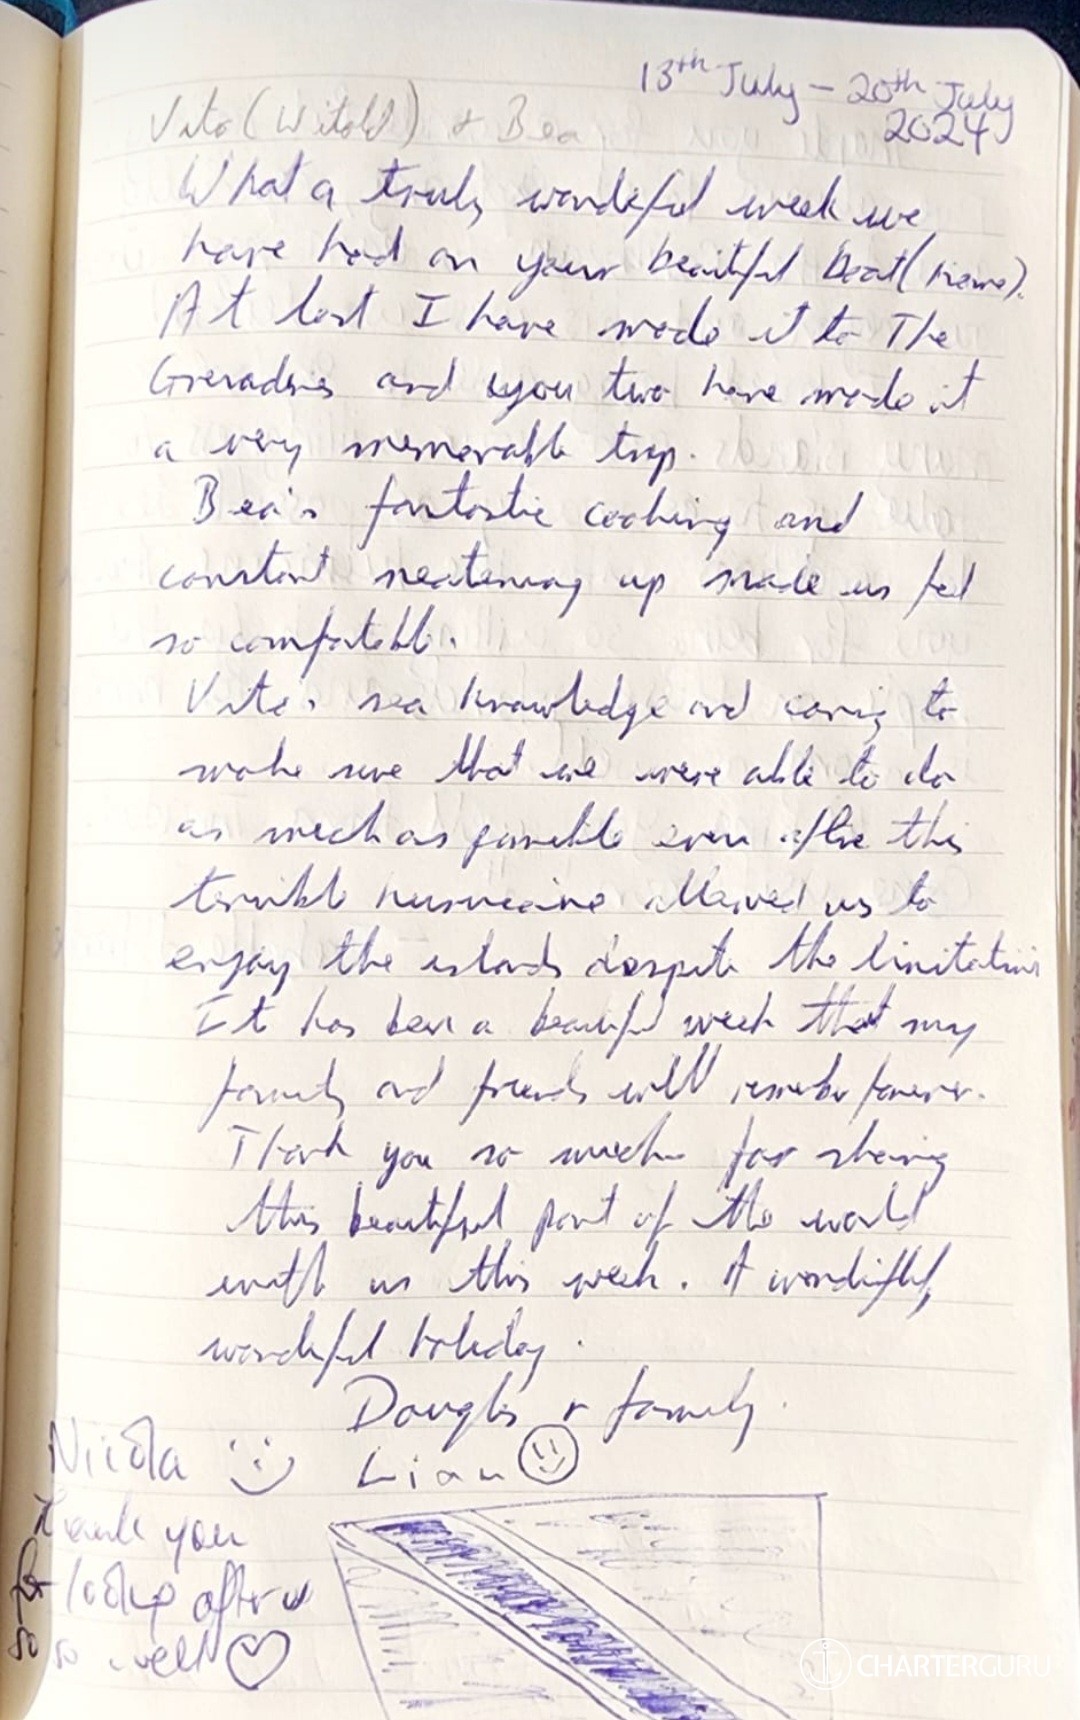 13th July – 20th July
2024
Vito (Witold) & Bea
What a truly wonderful week we
have had on your beautiful boat (home).
At last I have made it to The
Grenadines and you two have made it
a very memorable trip.
Bea's fantastic cooking and
constant neatening up made us feel
so comfortable.
Vito's sea knowledge and caring to
make sure that we were able to do
as much as possible even after this
terrible hurricane allowed us to
enjoy the islands despite the limitations
It has been a beautiful week that my
family and friends will remember forever.
Thank you so much for sharing
this beautiful part of the world
with us this week. A wonderful,
wonderful holiday.
Douglas & family.
Nicola
Liam
Thank you
for looking after us
so well
CHARTERGURU